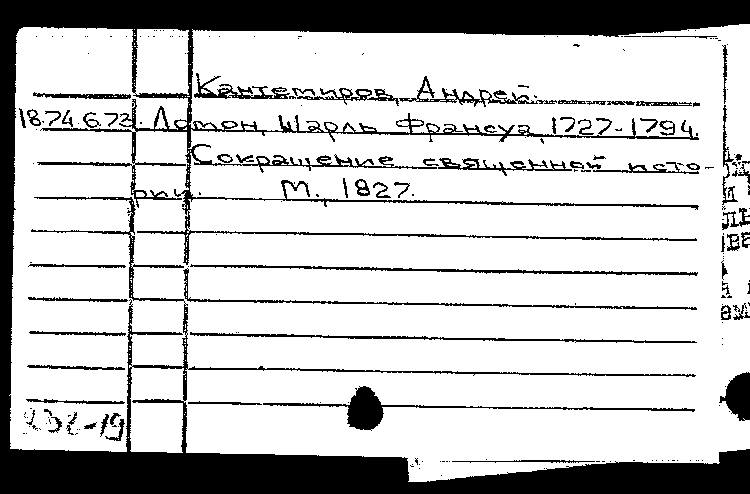 Кантемиров, Андрей.
18.74.6.73. Лотон, Шарль Франсуа, 1727-1794.
Сокращение священной исто-
рии. М., 1827.
232-19